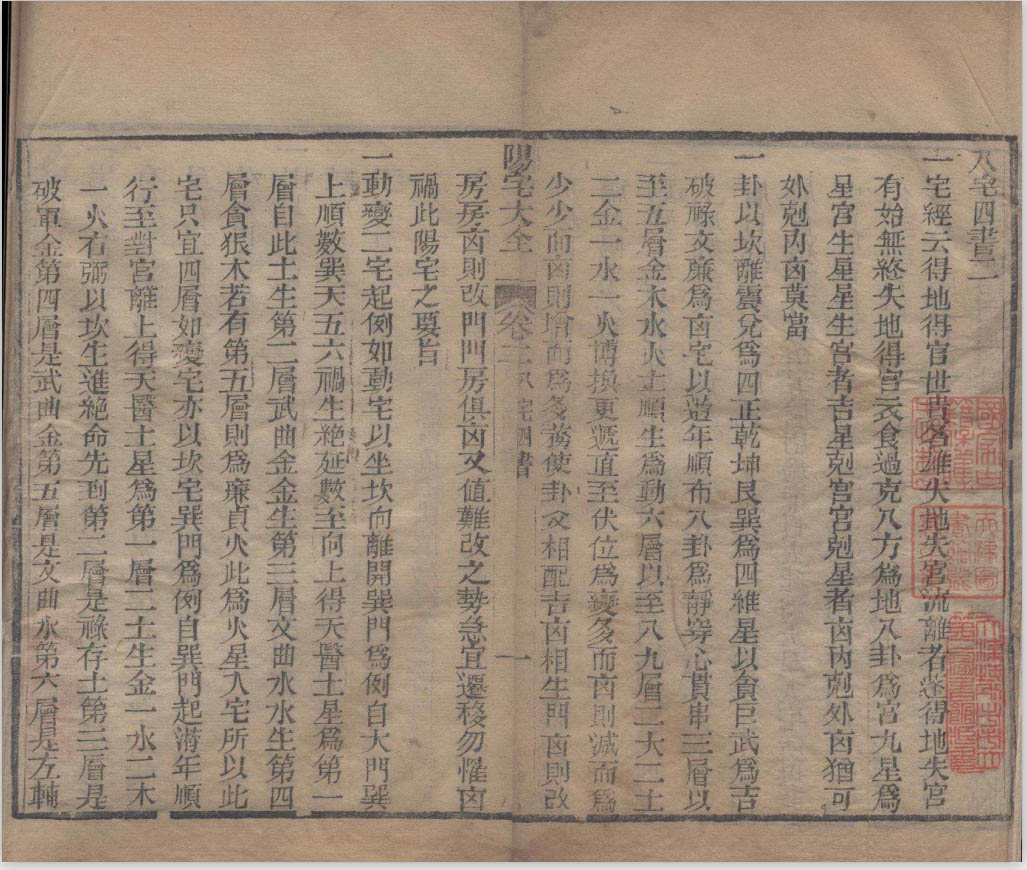 八宅四書二
一宅經云得地得宮世貴名雄失地失宮流離者遂得地失宮
有始無終失地得宮衣食過克八方為地八卦為宮九星為
星宮生星星生宮者吉星剋宮宮剋星者凶內剋外凶猶可
外剋內凶莫當
一卦以坎離震兌為四正乾坤艮巽為四維星以貪巨武為吉
破祿文廉為凶宅以遊年順布八卦為靜穿心貫串三層以
至五層金木水火土順生為動六層以至八九層二大二土
二金一水一火博換更遞直至伏位為變多而凶則減而為
少少而凶則增而為多務使卦爻相配吉凶相生門凶則改
陽宅大全 卷二 八宅四書 一
房房凶則改門門房俱凶又值難改之勢急宜遷移勿懼凶
禍此陽宅之要旨
一動變二宅起例如動宅以坐坎向離開巽門為例自大門巽
上順數巽天五六禍生絕延數至向上得天醫土星為第一
層自此土生第二層武曲金金生第三層文曲水水生第四
層貪狼木若有第五層則為廉貞火此為火星入宅所以此
宅只宜四層如變宅亦以坎宅巽門為例自巽門起游年順
行至對宮離上得天醫土星為第一層二土生金一水二木
一火右弼以坎生進絕命先到第二層是祿存土第三層是
破軍金第四層是武曲金第五層是文曲水第六層是左輔